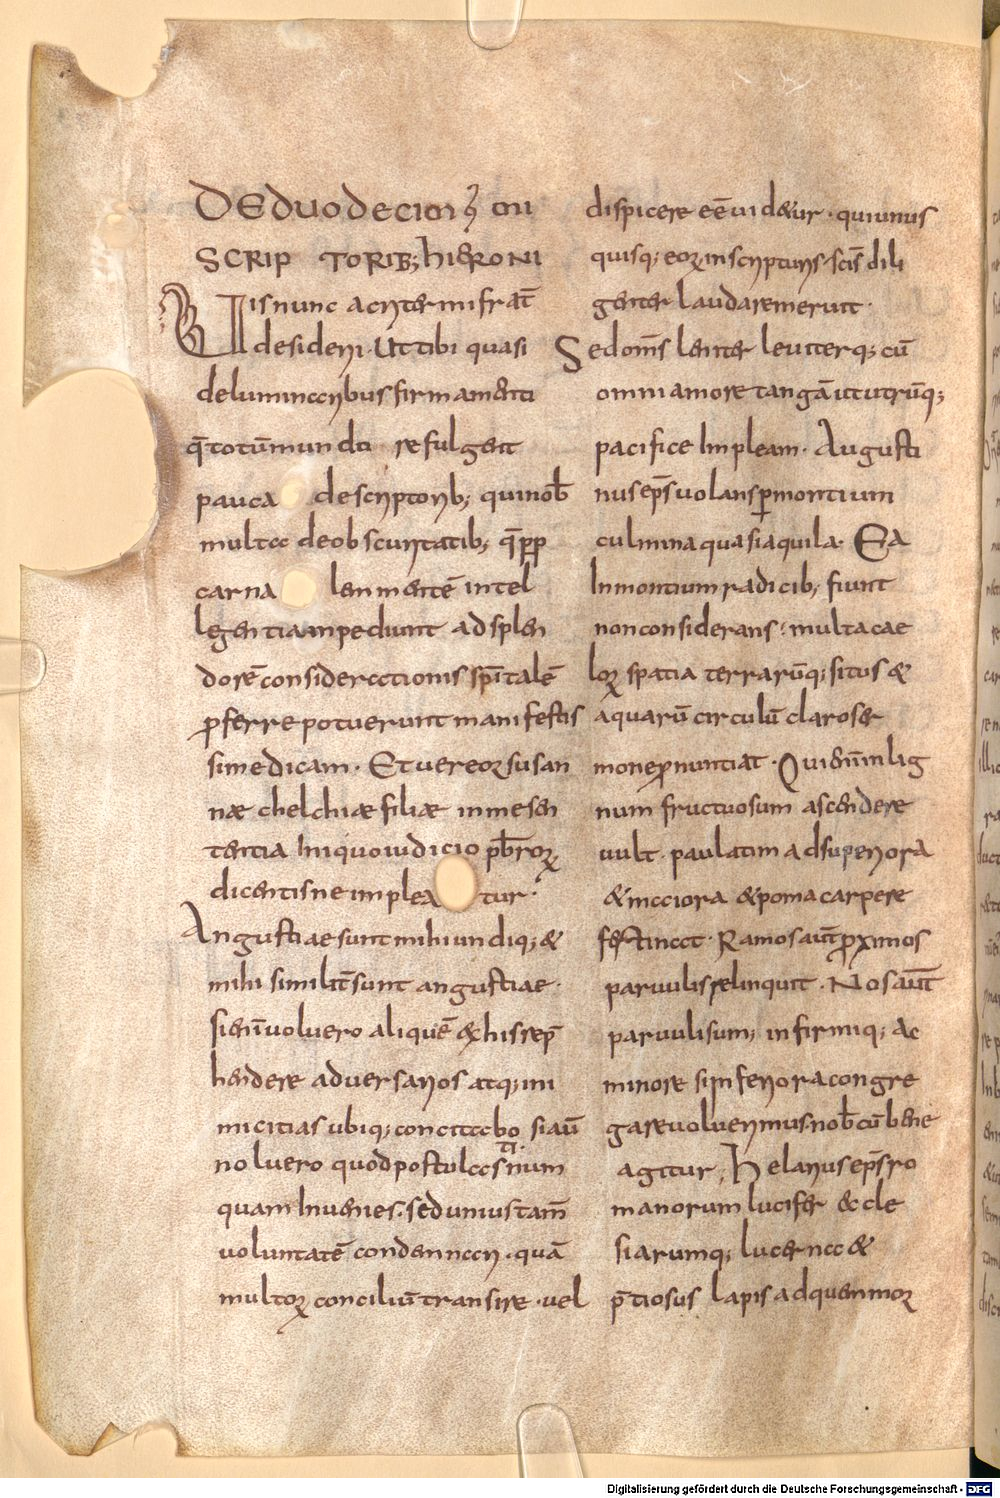 DE duodecim
SCRIPTORIB; hIERONI
Uis nunc acriter mi frat̄
desideri. Ut tibi quasi
de luminaribus firmamenti
q̄ totū mundū refulgent
pauca de scriptorib; qui nob̄
multa de obscuritatib; q̄ ꝓp
carnalem mentē intel
legentia inpediunt ad splen
dorē considerationis spīitalē
ꝓferre potuerunt manifestis
sime dicam. Et vereor susan
næ chelchiæ filiæ in me sen
tentia Iniquo iudicio pb̄roꝝ
dicentis ne impleatur.
Angustiae sunt mihi undiq; &
mihi similit̄ sunt angustiae.
si enī voluero aliquē ex his rep̄
hendere adversarios atq; ini
micitias ubiq; concitabo si aū
noluero quod postulasti. num
quam Invenies. sed unius tam̄
voluntatē condemnari. quā
multoꝝ conciliū transire. vel
dispicere eē videtur. qui unus
quisq; eoꝝ in scripturis scīs dili
genter laudare meruit.
Sed om̄s leniter leviterq; cū
omni amore tangā ut utrūq;
pacifice Impleam. Augusti
nus ep̄s volans ꝑ montium
culmina quasi aquila. Ea
In montium radicib; fiunt
non considerans. multa cae
loꝝ spatia terrarūq; situs &
aquarū circulū claro ser
mone ꝓnuntiat. Qui enī In lig
num fructuosum ascendere
vult. paulatim ad superiora
& maiora & poma carpere
festinat. Ramos aūt ꝓximos
parvulis relinquit. Nos aūt
parvuli sum; infirmiq; ac
minores inferiora congre
gare voluerimus. nob̄ cū bene
agitur; Helarius ep̄s ro
manorum lucifer & ecle
siarumq; lucerna &
p̄tiosus lapis ad quem moꝝ
Digitalisierung gefördert durch die Deutsche Forschungsgemeinschaft - DFG